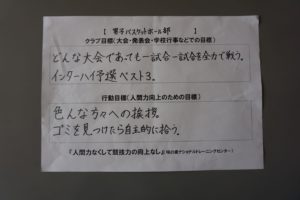 [ 男子バスケットボール部 ]
クラブ目標(大会・発表会・学校行事などでの目標)
どんな大会であっても一試合一試合を全力で戦う。
インターハイ予選ベスト3。
行動目標(人間力向上のための目標)
色んな方々への挨拶。
ゴミを見つけたら自主的に拾う。
『人間力なくして競技力の向上なし』(味の素ナショナルトレーニングセンター)